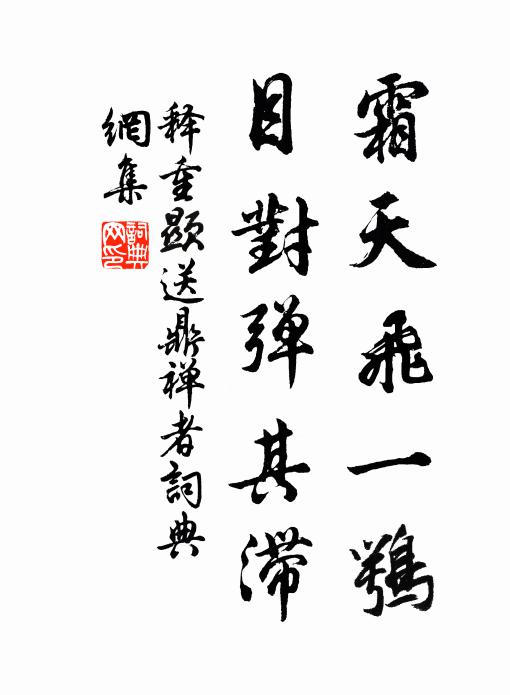 霜天飛一鶚
目對弹其滞
释重顯送鼎禅者詞典
網集
詞典网印